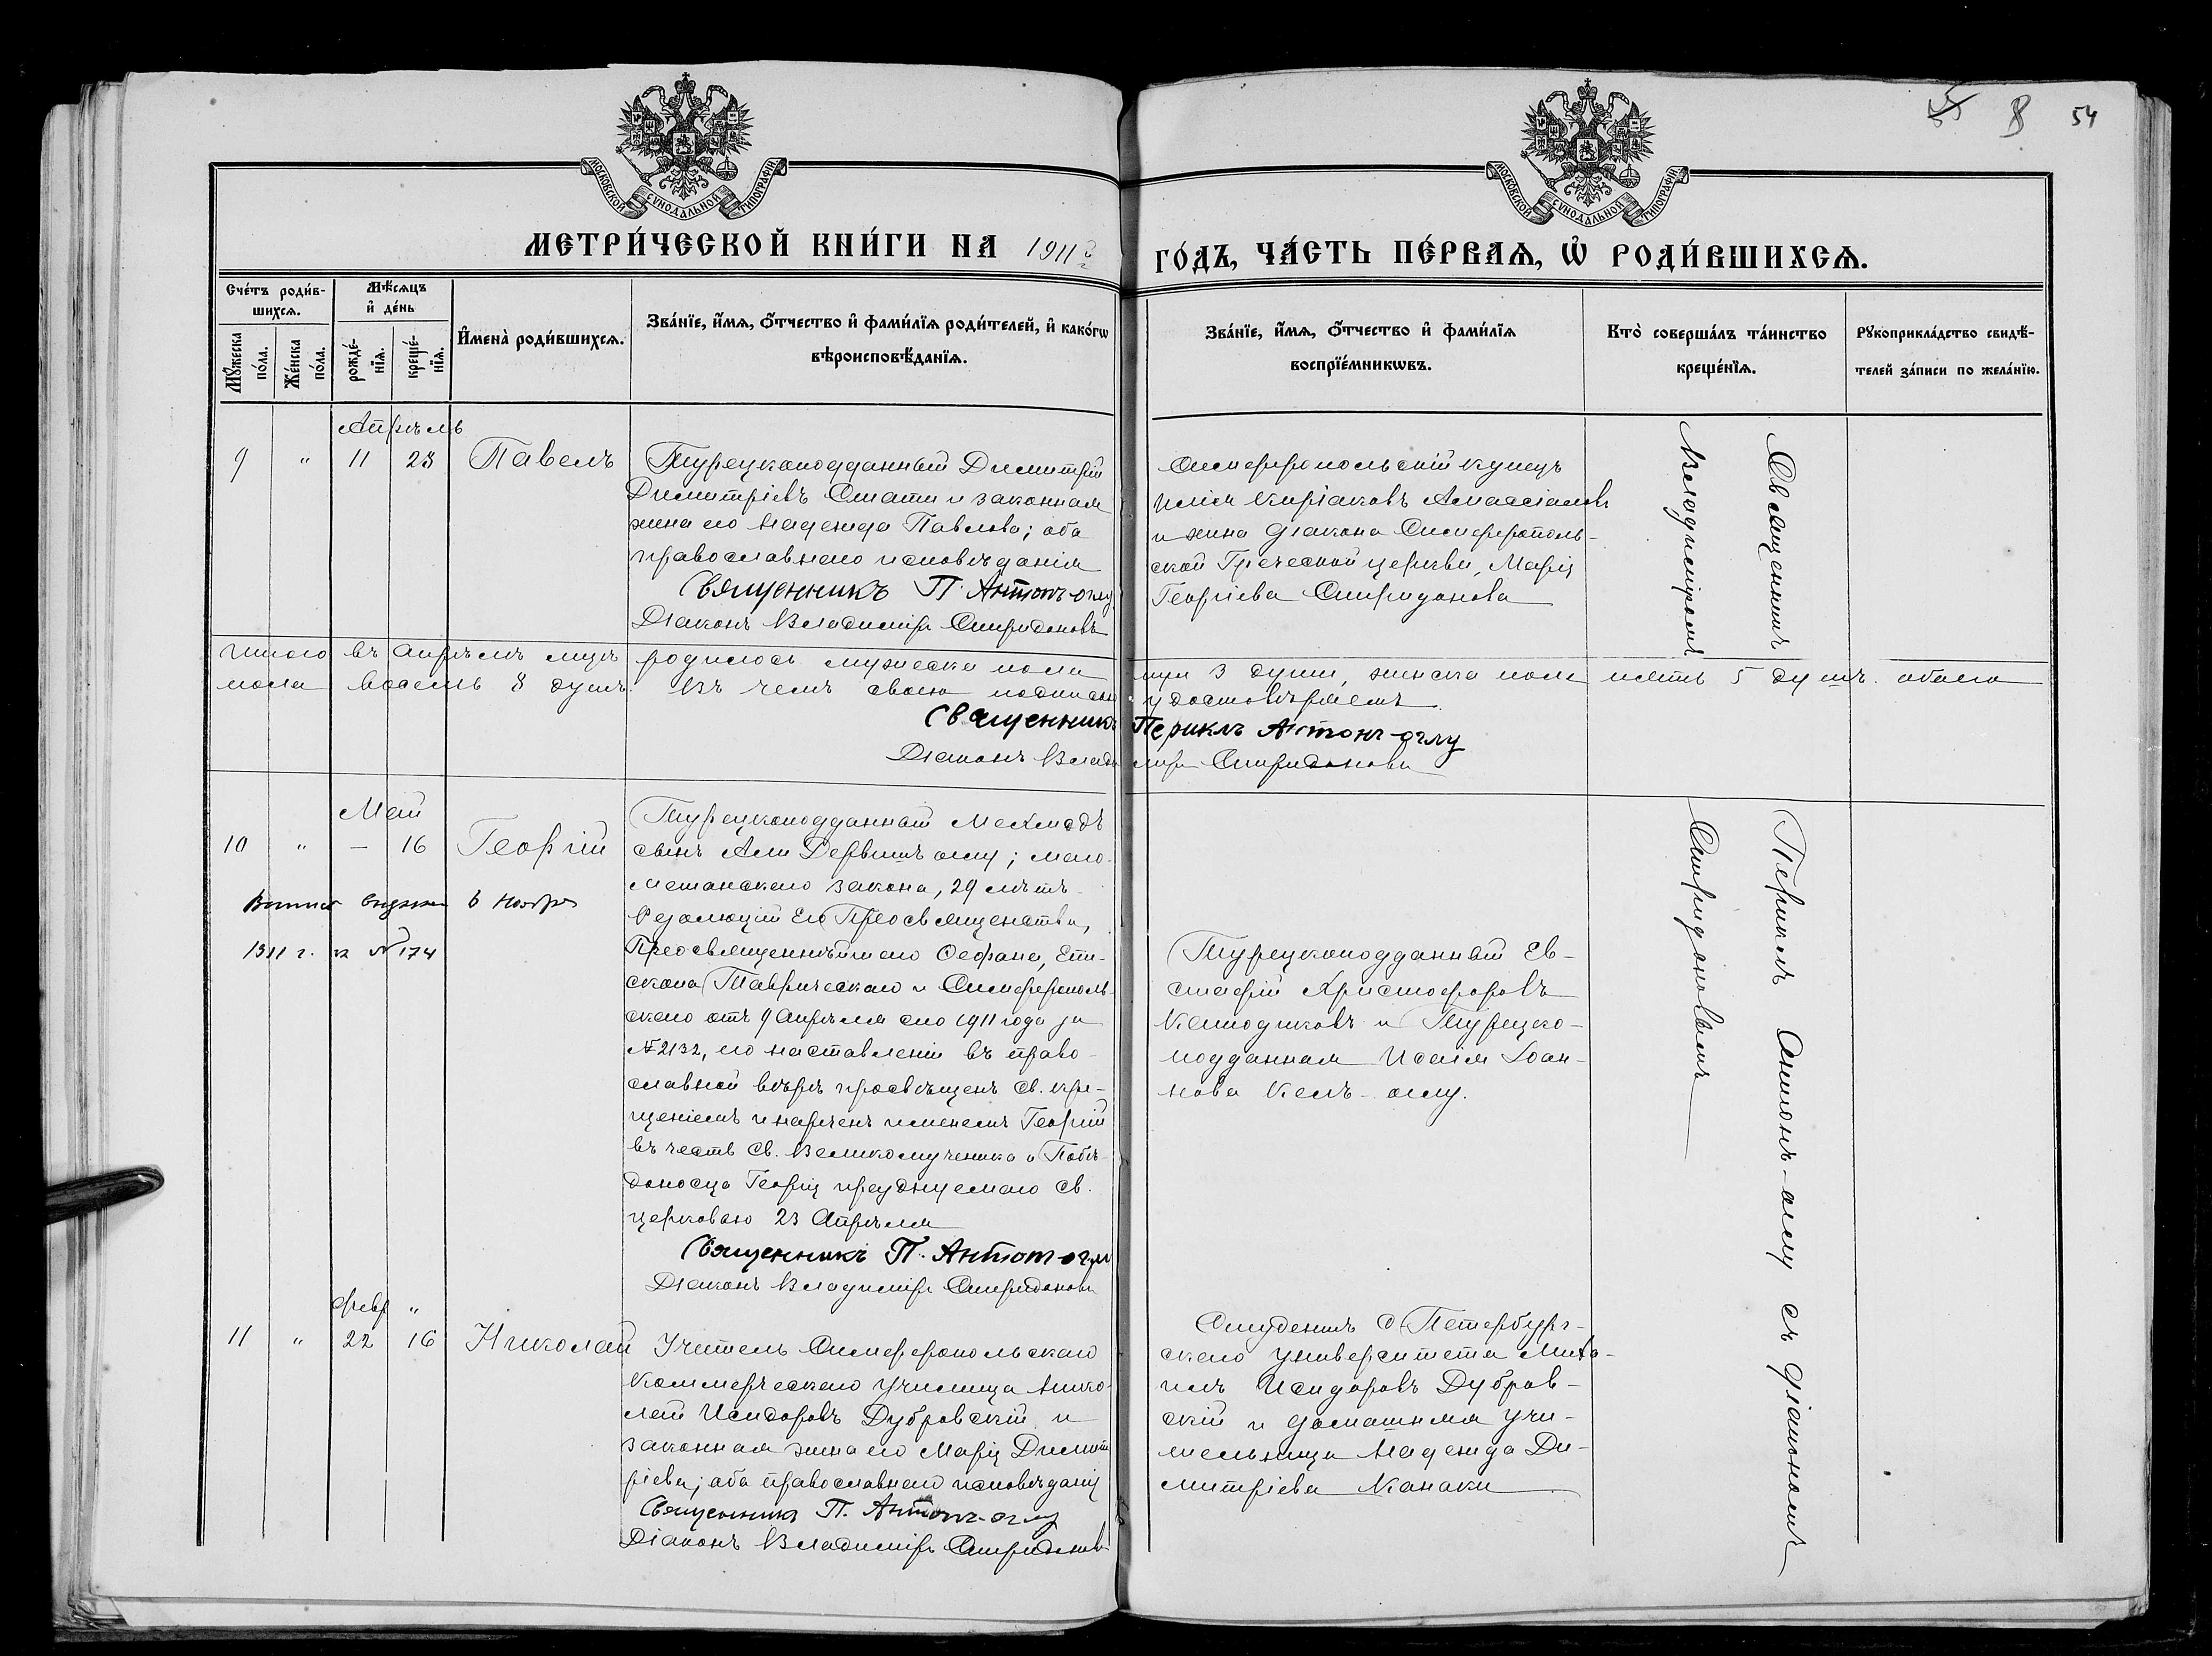 55 8 54
МОСКОВСКОЙ СѴНОДАЛЬНОЙ ТИПОГРАФІИ
МОСКОВСКОЙ СѴНОДАЛЬНОЙ ТИПОГРАФІИ
МЕТРИ́ЧЕСКОЙ КНИ́ГИ НА 1911й ГО́ДЪ, ЧА́СТЬ ПЕ́РВАѦ, Ѡ҆ РОДИ́ВШИХСѦ.
Сче́тъ роди́в-
шихсѧ.
Мѣ́сѧцъ
и҆ де́нь
Мꙋ́жеска
по́ла.
Же́нска
по́ла.
рожде́-
нїѧ.
креще́-
нїѧ.
И҆мена̀ роди́вшихсѧ.
Зва́нїе, и҆́мѧ, ѻ҆́тчество и҆ фами́лїѧ роди́телей, и҆ како́гѡ
вѣроисповѣ́данїѧ.
Зва́нїе, и҆́мѧ, ѻ҆́тчество и҆ фами́лїѧ
воспрїе́мникѡвъ.
Кто̀ соверша́лъ та́инство
креще́нїѧ.
Рꙋкоприкла́дство свидѣ́-
телей за́писи по жела́нїю.
Апрѣль
9 " 11 23 Павелъ
Турецкоподданный Димитрій
Димитріевъ Стати и законная
жена его Надежда Павлова; оба
православнаго исповѣданія
Священникъ П. Антонъ-оглу
Діаконъ Владиміръ Спиридоновъ
Симферопольскій купецъ
Илія Киріаковъ
и жена діакона Симферополь-
ской Греческой церкви, Марія
Георгіева Спиридонова
Священникъ
Владиміромъ
Итого въ Апрѣлѣ мцѣ родилось мужеска пола три 3 души, женска пола пять 5 душъ обоего
пола восемь 8 душъ. Въ чемъ своею подписью удостовѣряемъ
Священникъ Периклъ Антонъ-оглу
Діаконъ Владиміръ Спиридоновъ
Май
10 " — 16 Георгій
в ноябре
1911 г. за № 174
Турецкоподданный Мехмедъ
сынъ Али Дервишъ оглу; маго-
метанскаго закона, 29 лѣтъ
Резолюціи Его Преосвященства,
Преосвященнѣйшаго Ѳеофана, Епи-
скопа Таврическаго и Симферополь-
скаго отъ 9 Апрѣля сего 1911 года за
№ 2132, по наставленіи въ право-
славной вѣрѣ просвѣщенъ св. кре-
щеніемъ и нареченъ именемъ Георгій
въ честь св. Великомученика и Побѣ-
доносца Георгія празднуемаго св.
церковью 23 Апрѣля
Священникъ П. Антонъ-оглу
Діаконъ Владиміръ Спиридоновъ
Турецкоподданный Ев-
стафій Христофоровъ
и Турецко-
подданная Исаія Іоан-
нова Кель-оглу.
Периклъ Антонъ-оглу съ діакономъ
Спиридоновымъ
Февр "
11 " 22 16 Николай
Учитель Симферопольскаго
Коммерческаго Училища Нико-
лай Исидоровъ Дубровскій и
законная жена его Марія Димит-
ріева; оба православнаго исповѣданія
Священникъ П. Антонъ-оглу
Діаконъ Владиміръ Спиридоновъ
Студентъ С Петербург-
скаго Университета Миха-
илъ Исидоровъ Дубров-
скій и домашняя учи-
тельница Надежда Ди-
митріева Канаки